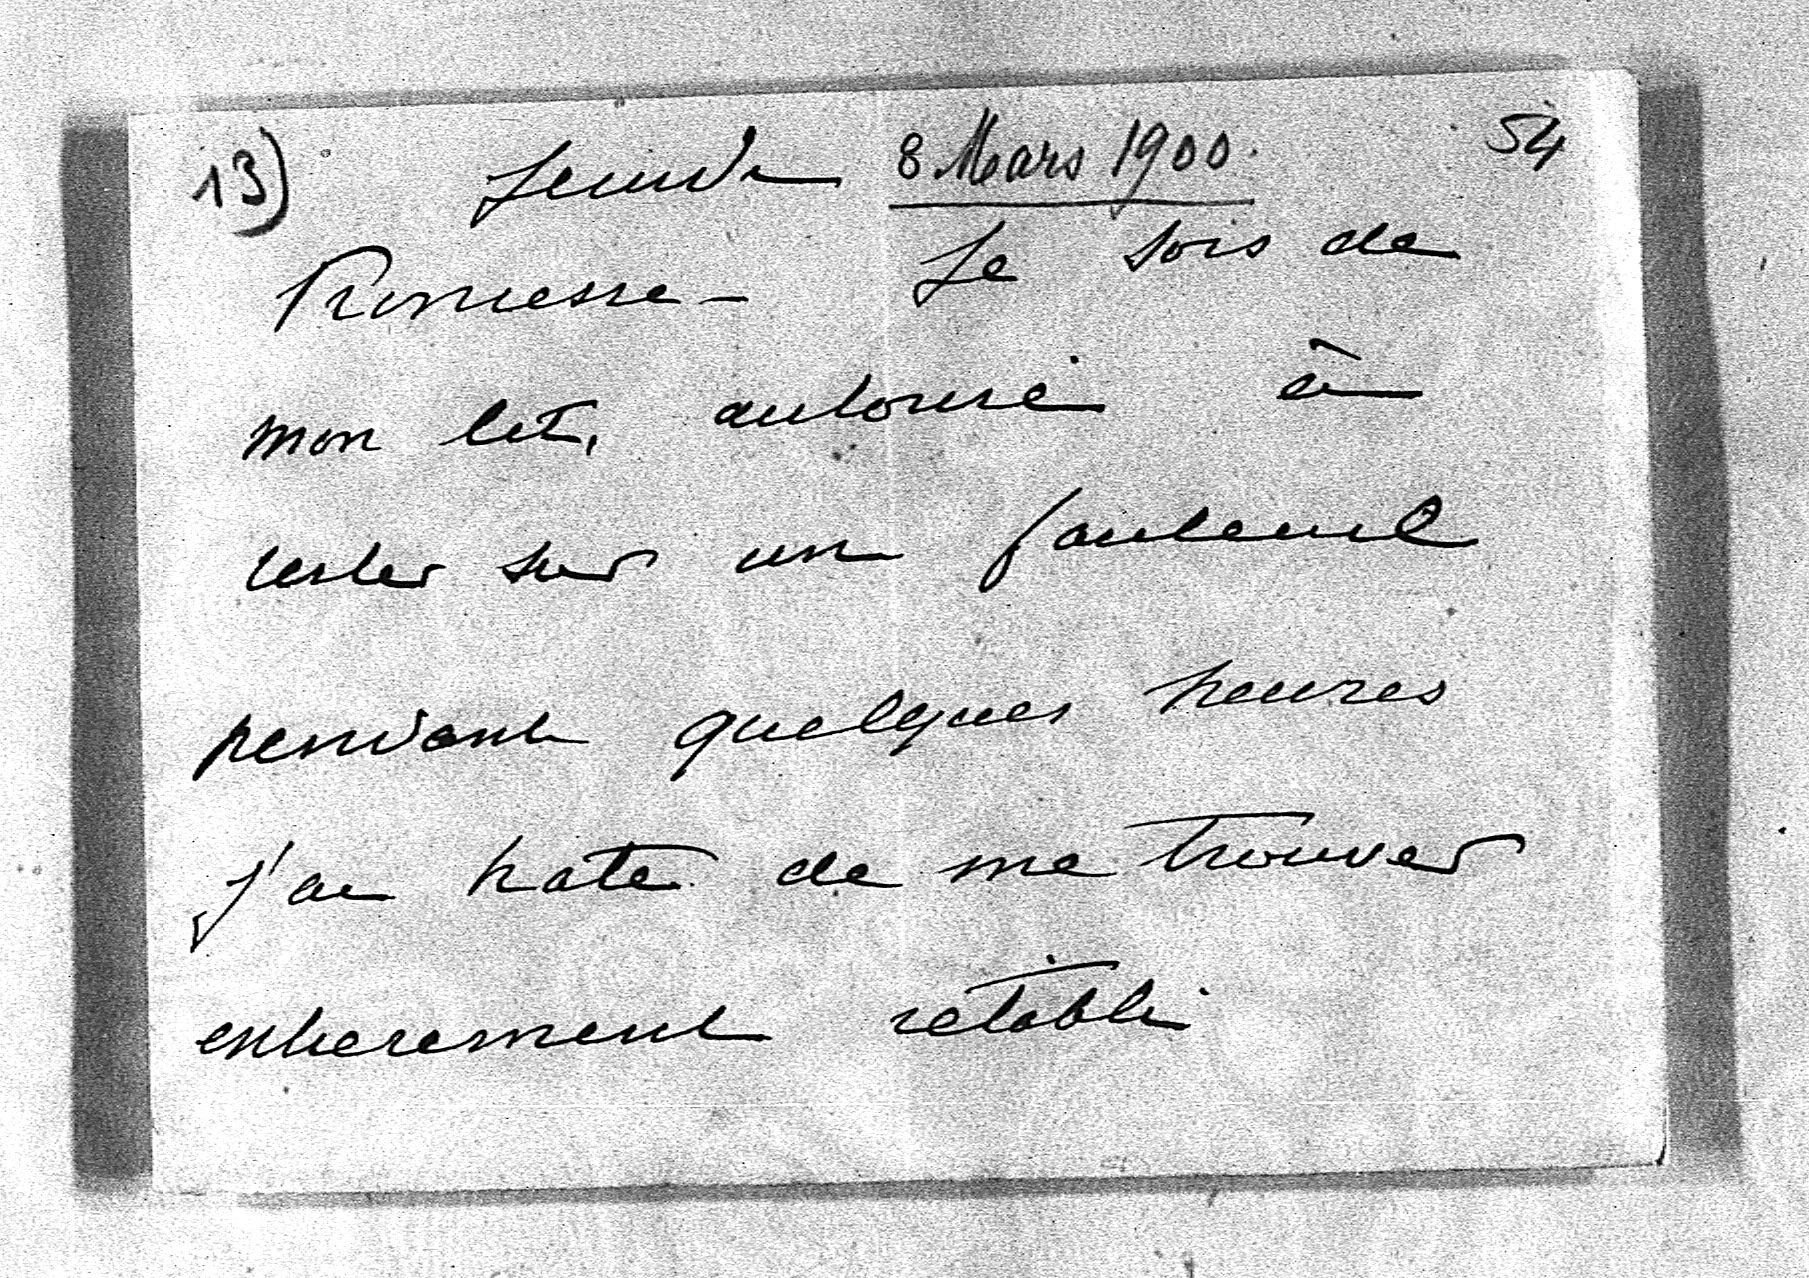 13) Jeudi 8 Mars 1900. 54
Princesse - Je sors de
mon lit, autorisé à
rester sur un fauteuil
pendant quelques heures
j'ai hate de me trouver
entierement rétabli